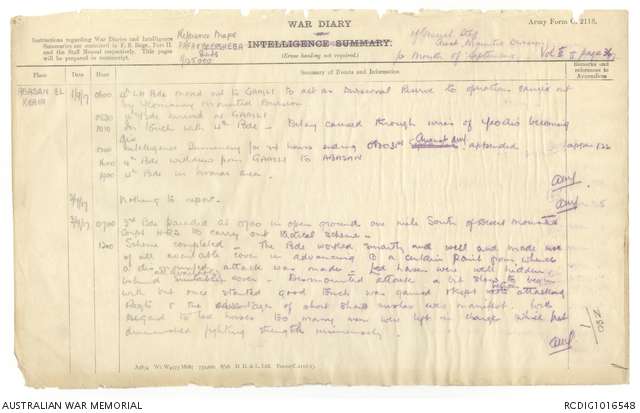 WAR DIARY
Army Form C. 2118.
Instructions regarding War Diaries and Intelligence
Summaries are contained in F.S. Regs., Part II.
and the Staff Manual respectively. Title pages
will be prepared in manuscript.
Reference Maps
BEERSHEBA
INTELLIGENCE SUMMARY.
(Erase heading not required.)
of General Staff
for Month of September
Vol
Place
Date
Hour
Summary of Events and Information
Remarks and
references to
Appendices
ABASAN EL
KEBIR
1/9/17
0600
4th LH Bde moved out to GAMLI to act as Divisional Reserve to operations carried out
by Yeomanry Mounted Division
0830
4th Bde arrived at GAMLI
1010
In touch with 4th Bde - Delay caused through wires of
dis
Intelligence Summary for 24 hours ending appended
appx 122
1600
4th Bde withdrew from GAMLI to ABASAN
1900
4th Bde in normal area
2/9/17
Nothing to report
3/9/17
0700
3rd Bde paraded at 0700 in open ground one mile South of Desert Mounted
Corps HQRS to carry out tactical scheme
1200
Scheme completed - The Bde worked smartly and well and made use
of all available cover in advancing to a certain point from whence
a dismounted attack was made - Led horses were well hidden
behind available cover - Dismounted attack a bit slow to begin
with but once started good touch was kept with attacking
Regts & the advantage of short sharp rushes was manifest. With
regard to led horses too many men were left in charge which
diminished fighting strength
H. D. & L., Ltd.
AUSTRALIAN WAR MEMORIAL
RCDIG1016548